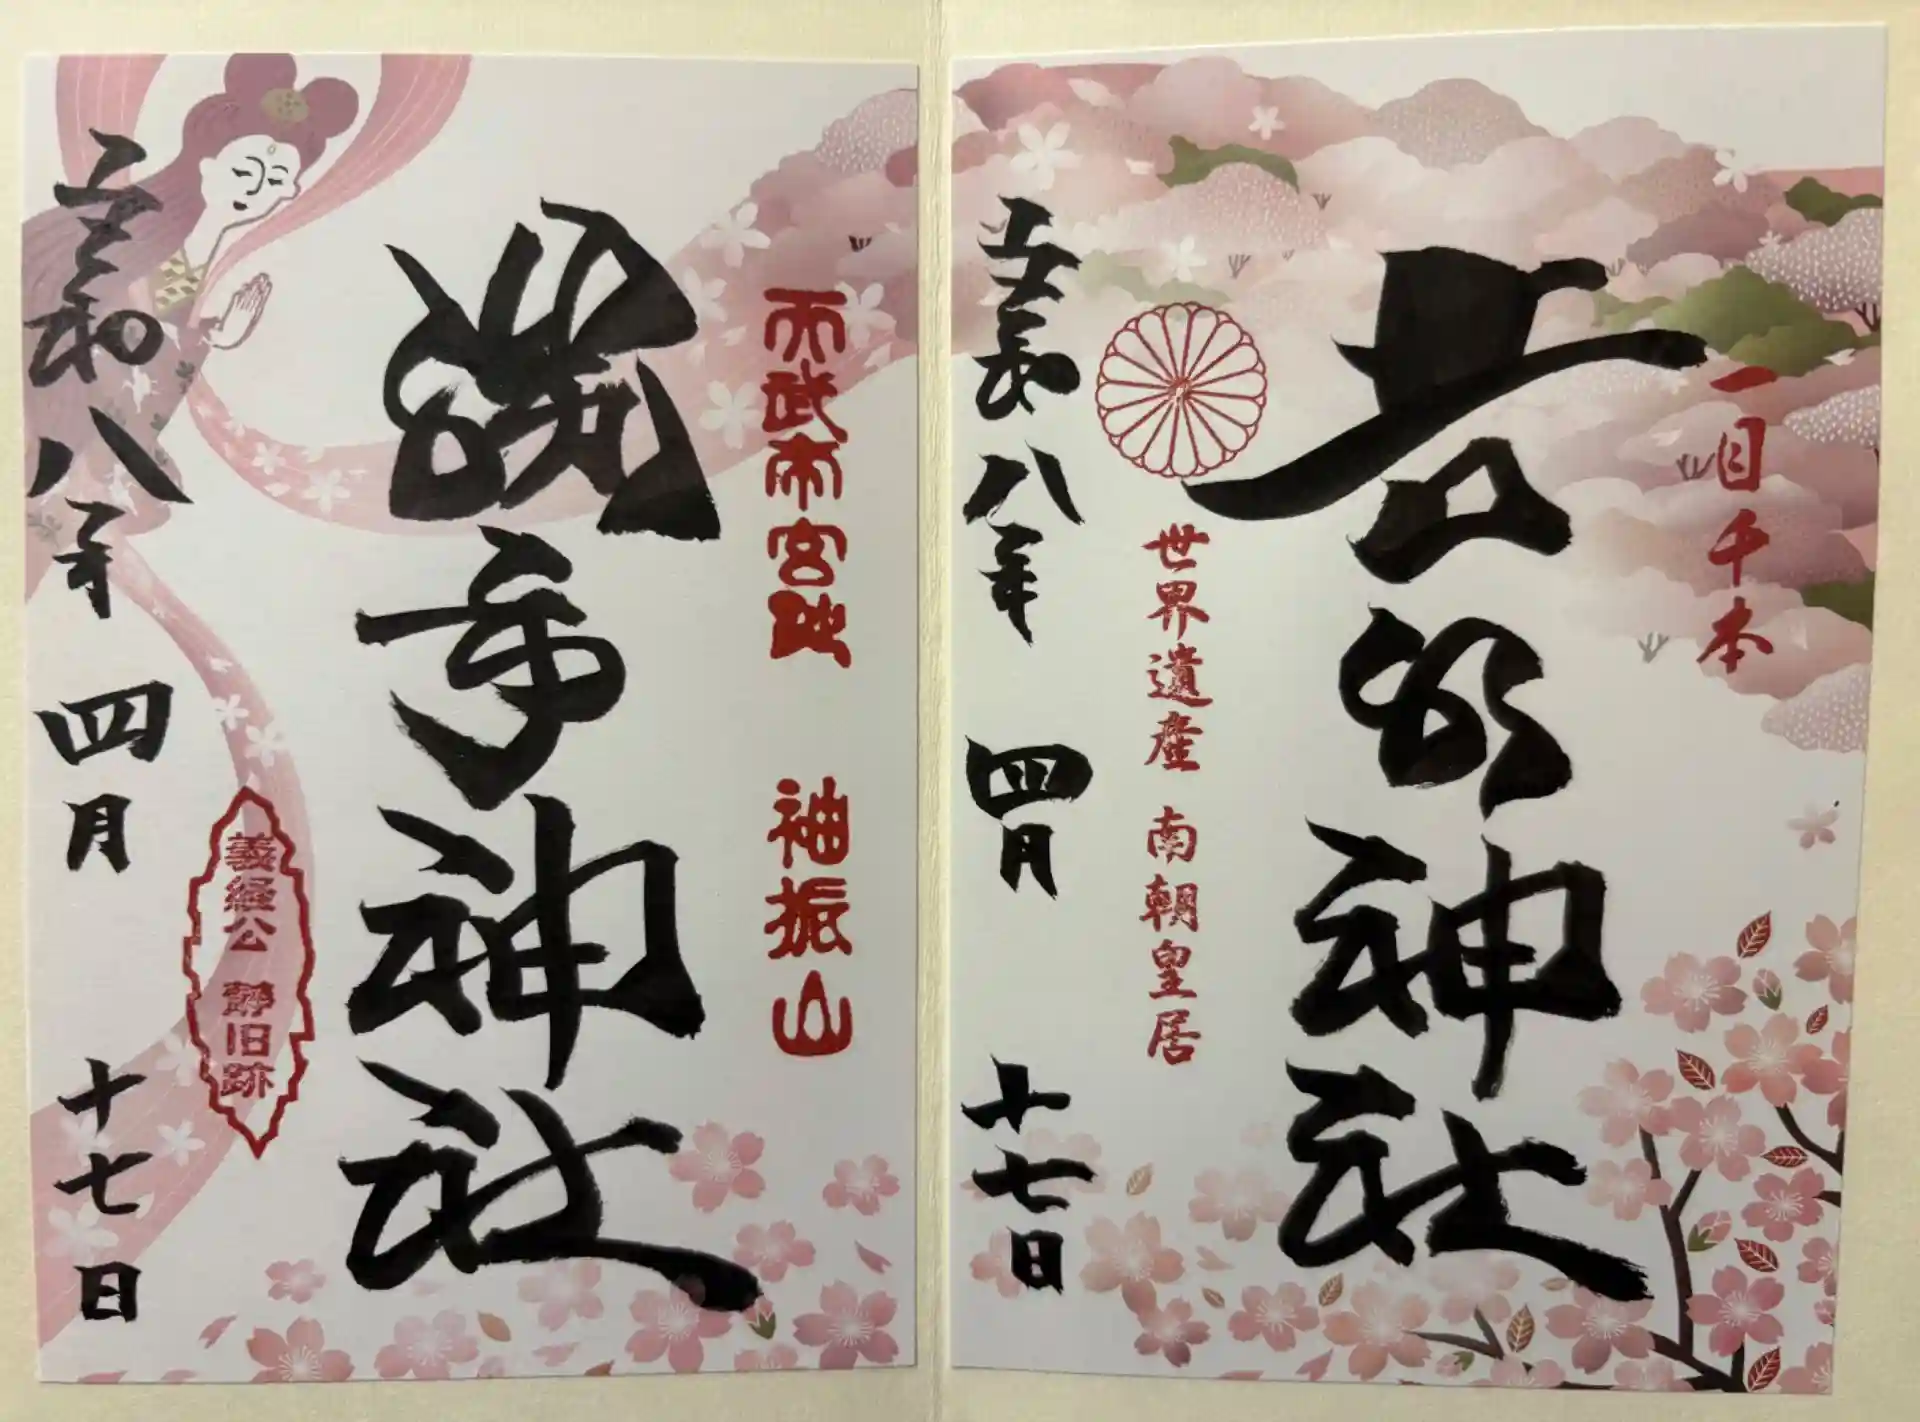 一目千本
吉水神社
世界遺産 南朝皇居
令和八年 四月 十七日
天武帝宮跡 袖振山
勝手神社
義経公 静旧跡
令和八年 四月 十七日